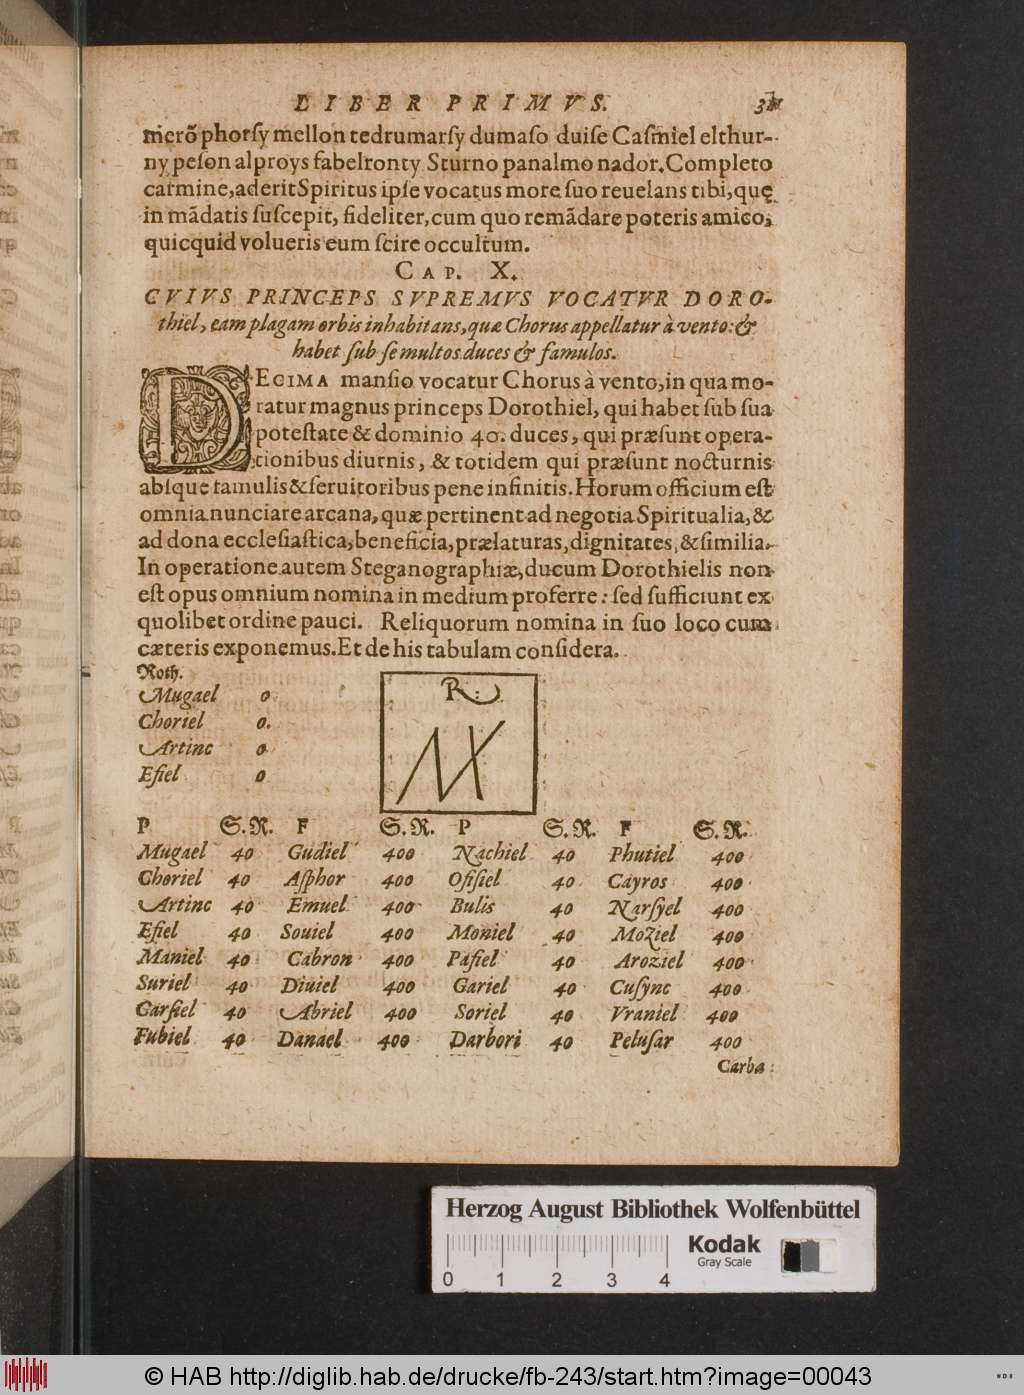 LIBER PRIMVS. 31
merõ phorſy mellon tedrumarſy dumaſo duiſe Caſmiel elthur-
ny peſon alproys fabelronty Sturno panalmo nador. Completo
carmine, aderit Spiritus ipſe vocatus more ſuo reuelans tibi, quę
in mãdatis ſuſcepit, fideliter, cum quo remãdare poteris amico,
quicquid volueris eum ſcire occultum.
CAP. X.
CVIVS PRINCEPS SVPREMVS VOCATVR DORO-
thiel, eam plagam orbis inhabitans, quæ Chorus appellatur à vento: &
habet ſub ſe multos duces & famulos.
DECIMA manſio vocatur Chorus à vento, in qua mo-
ratur magnus princeps Dorothiel, qui habet ſub ſua
poteſtate & dominio 40. duces, qui præſunt opera-
tionibus diurnis, & totidem qui præſunt nocturnis
abſque famulis & ſeruitoribus pene infinitis. Horum officium eſt
omnia nunciare arcana, quæ pertinent ad negotia Spiritualia, &
ad dona eccleſiaſtica, beneficia, prælaturas, dignitates, & ſimilia.
In operatione autem Steganographiæ, ducum Dorothielis non
eſt opus omnium nomina in medium proferre: ſed ſufficiunt ex
quolibet ordine pauci. Reliquorum nomina in ſuo loco cum
cæteris exponemus. Et de his tabulam conſidera.
Roth.
Mugael 0
Choriel 0.
Artinc 0
Eſiel 0
R:
P S.R. F S.R. P S.R. F S.R.
Mugael 40 Gudiel 400 Nachiel 40 Phutiel 400
Choriel 40 Aſphor 400 Oſiſiel 40 Cayros 400
Artinc 40 Emuel 400 Bulis 40 Narſyel 400
Eſiel 40 Souiel 400 Moniel 40 Moziel 400
Maniel 40 Cabron 400 Paſiel 40 Aroziel 400
Suriel 40 Diuiel 400 Gariel 40 Cuſync 400
Garſiel 40 Abriel 400 Soriel 40 Vraniel 400
Fubiel 40 Danael 400 Darbori 40 Peluſar 400
Carba:
Herzog August Bibliothek Wolfenbüttel
0 1 2 3 4
Kodak
Gray Scale
© HAB http://diglib.hab.de/drucke/fb-243/start.htm?image=00043